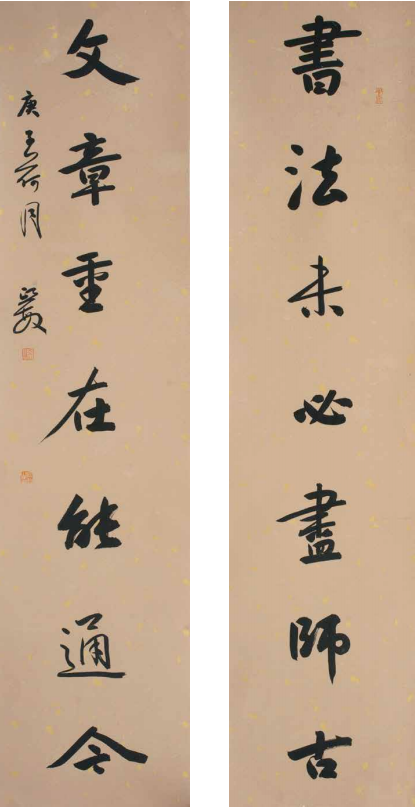 書法未必盡師古
文章重在能通今
庚子荷月